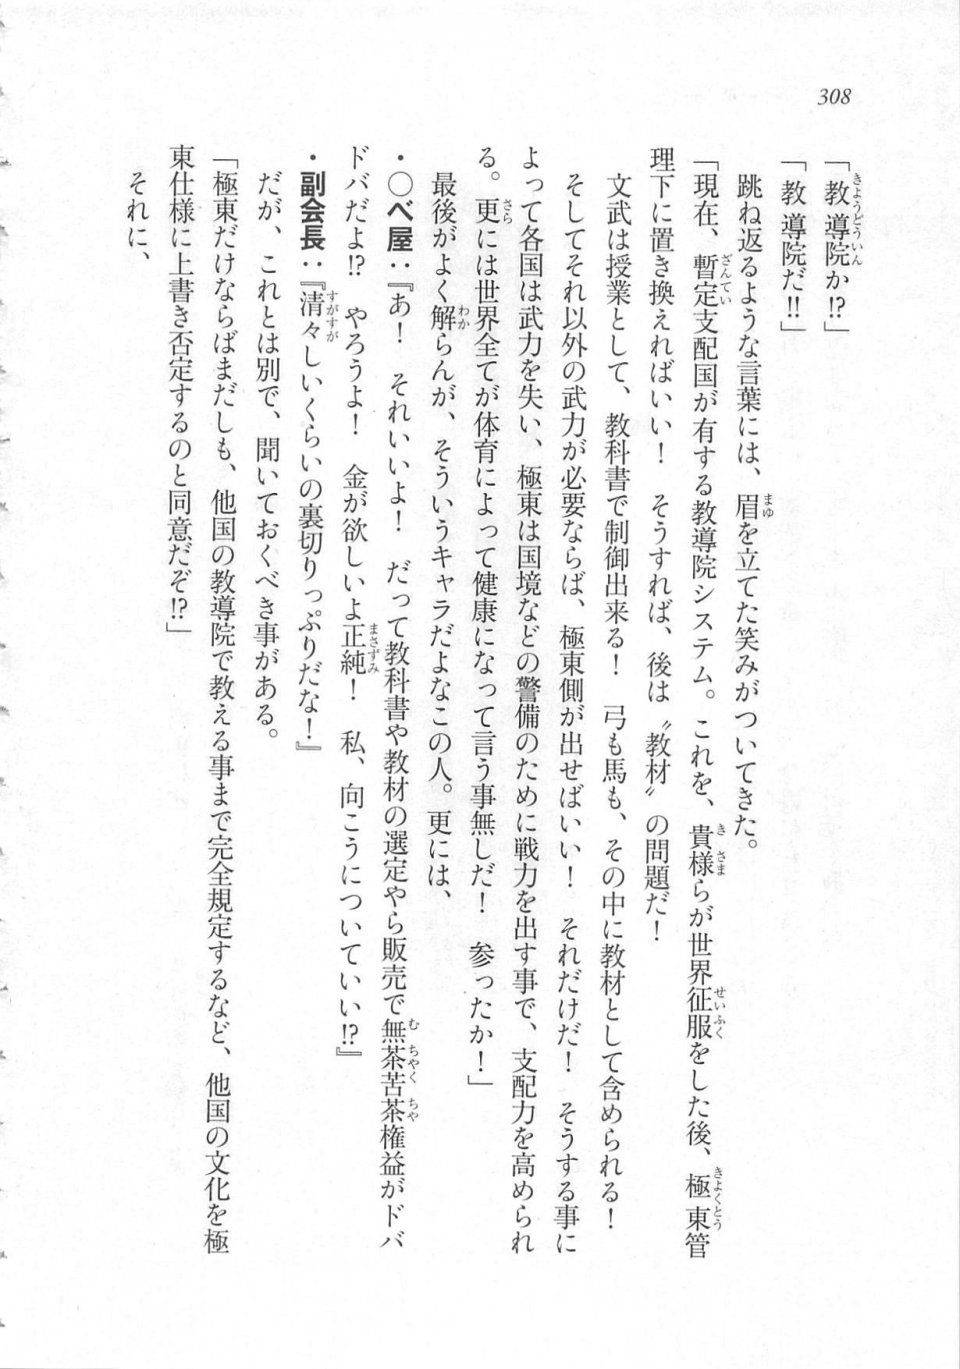 308
「教導院か!?」
「教導院だ!!」
　跳ね返るような言葉には、眉を立てた笑みがついてきた。
「現在、暫定支配国が有する教導院システム。これを、貴様らが世界征服をした後、極東管
理下に置き換えればいい！　そうすれば、後は〝教材〟の問題だ！
　文武は授業として、教科書で制御出来る！　弓も馬も、その中に教材として含められる！
　そしてそれ以外の武力が必要ならば、極東側が出せばいい！　それだけだ！　そうする事に
よって各国は武力を失い、極東は国境などの警備のために戦力を出す事で、支配力を高められ
る。更には世界全てが体育によって健康になって言う事無しだ！　参ったか！」
　最後がよく解らんが、そういうキャラだよなこの人。更には、
・○べ屋：『あ！　それいいよ！　だって教科書や教材の選定やら販売で無茶苦茶権益がドバ
ドバだよ!?　やろうよ！　金が欲しいよ正純！　私、向こうについていい!?』
・副会長：『清々しいくらいの裏切りっぷりだな！』
　だが、これとは別で、聞いておくべき事がある。
「極東だけならばまだしも、他国の教導院で教える事まで完全規定するなど、他国の文化を極
東仕様に上書き否定するのと同意だぞ!?」
　それに、